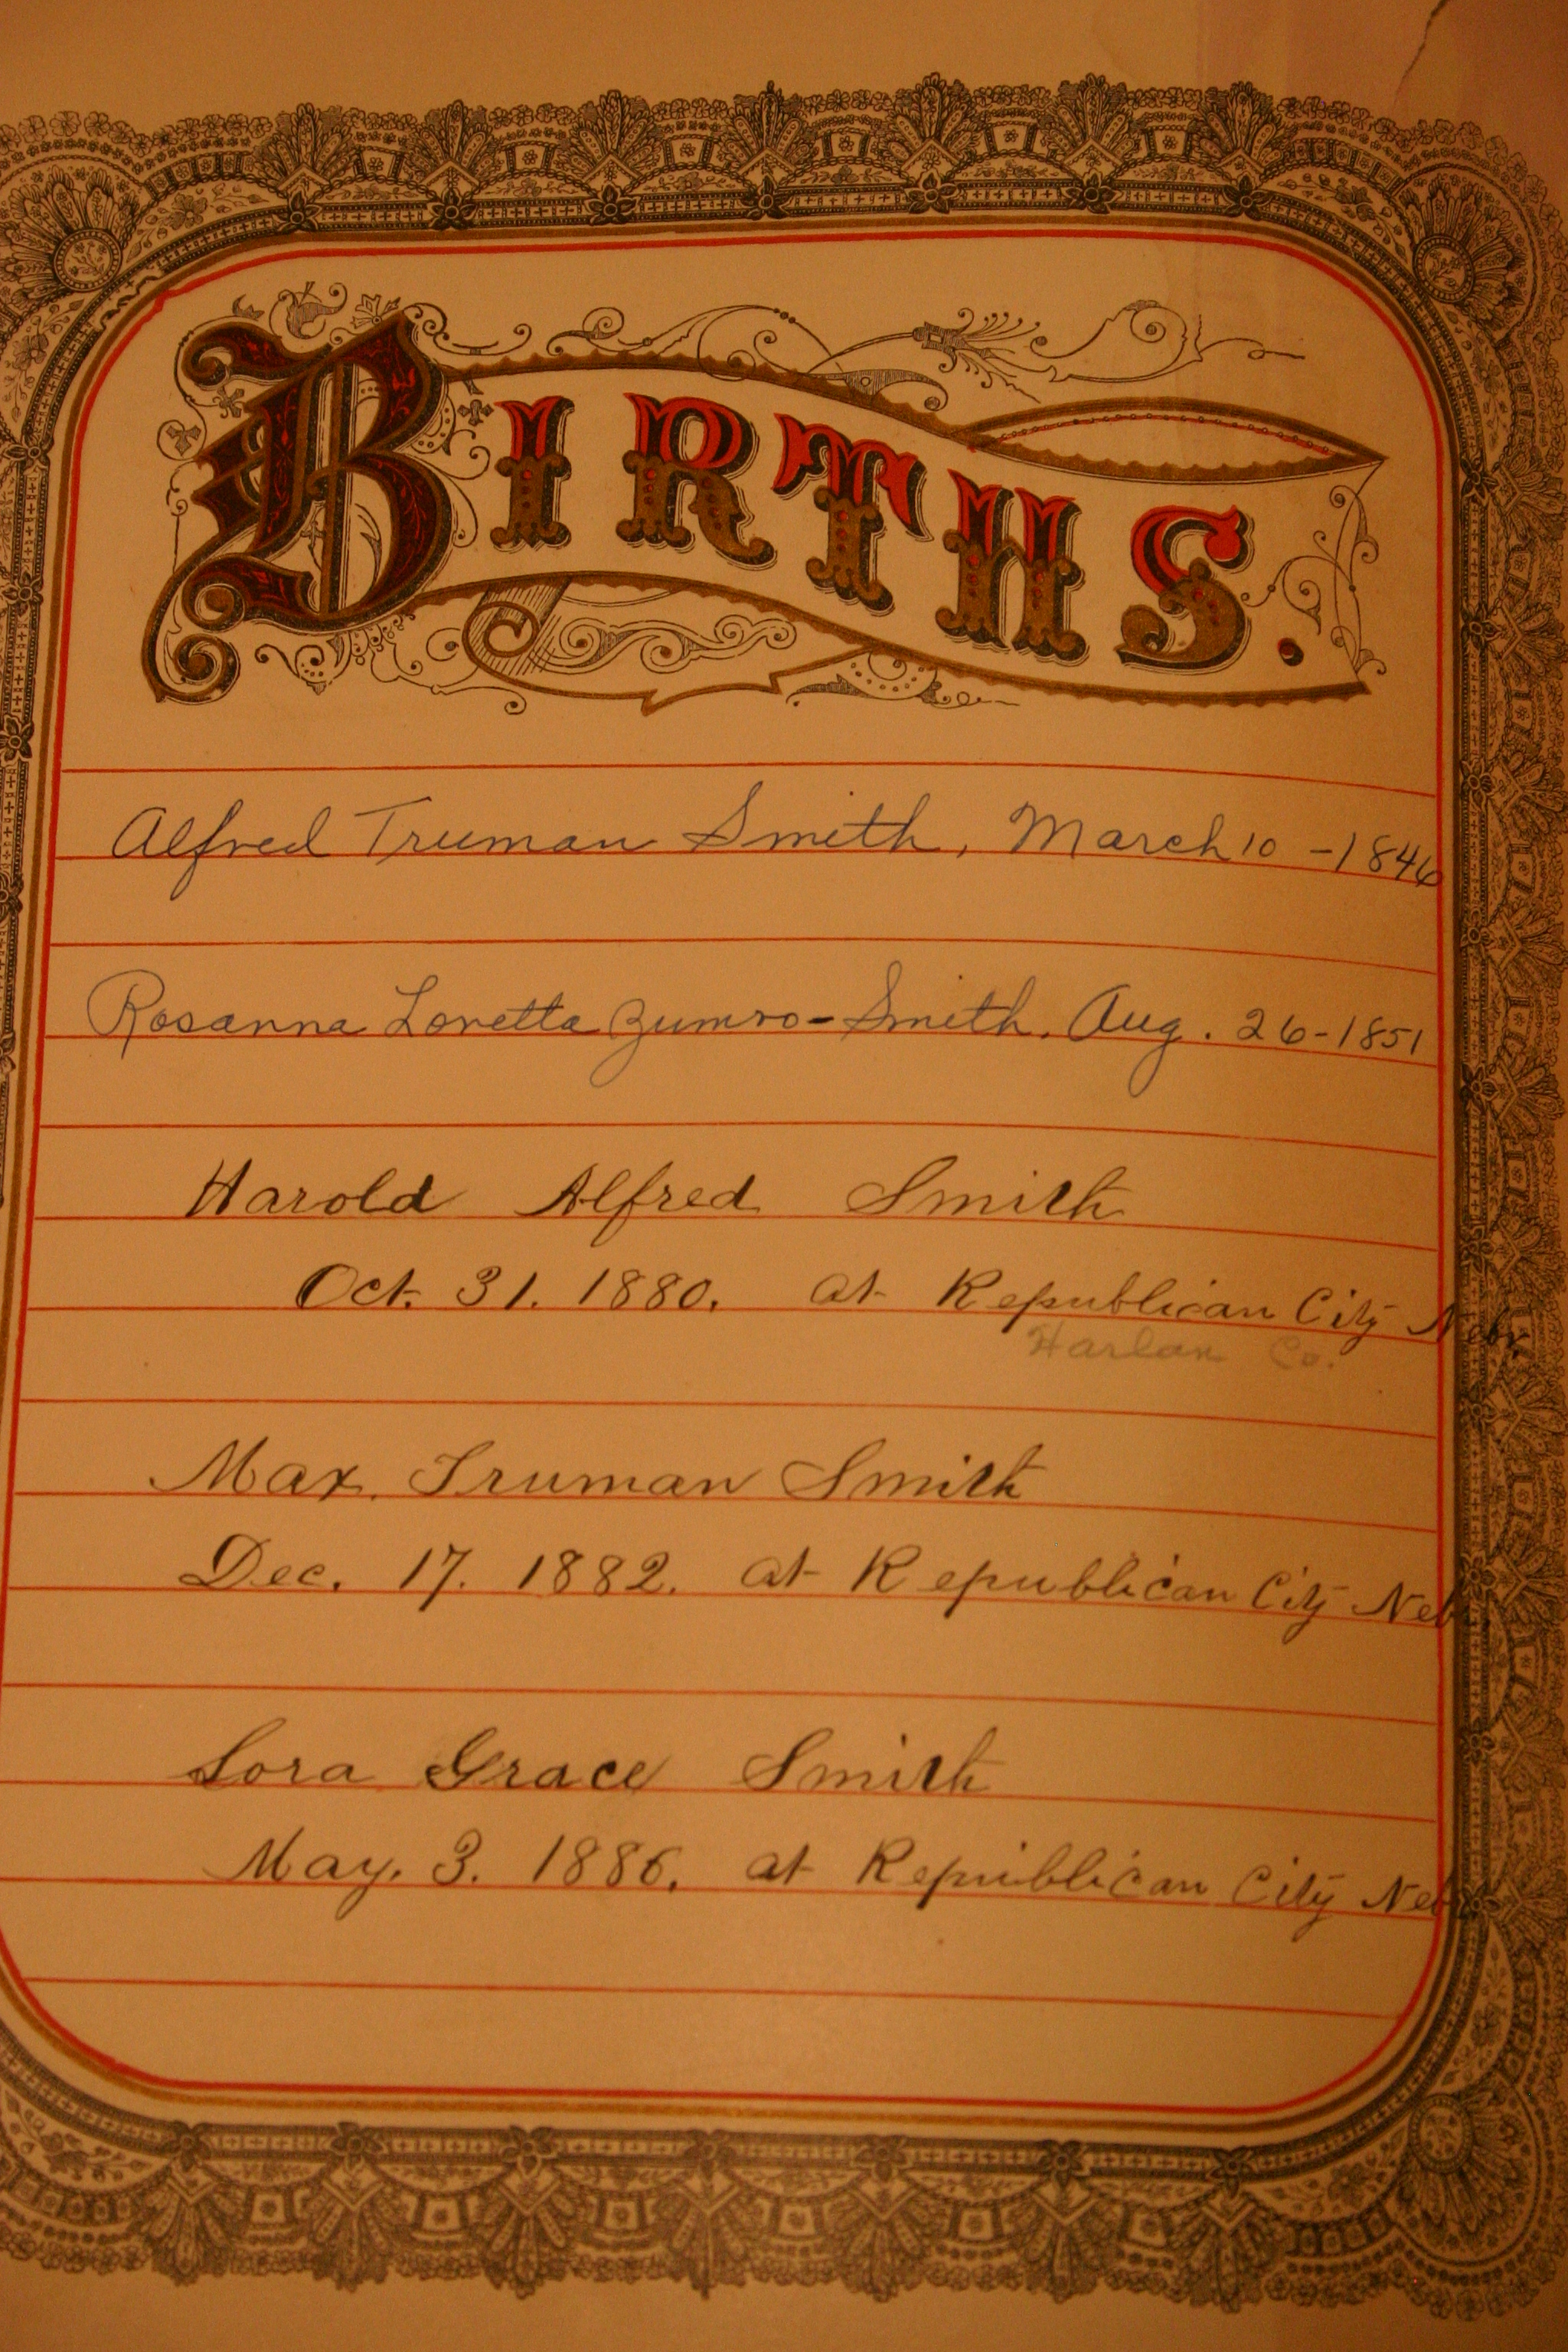 BIRTHS.
Alfred Truman Smith, March 10 - 1846
Rosanna Loretta Zumro-Smith, Aug. 26-1851
Harold Alfred Smith
Oct. 31. 1880. at Republican City Nebr.
Harlan Co.
Max. Truman Smith
Dec. 17. 1882. at Republican City Neb.
Lora Grace Smith
May. 3. 1886. at Republican City Neb.